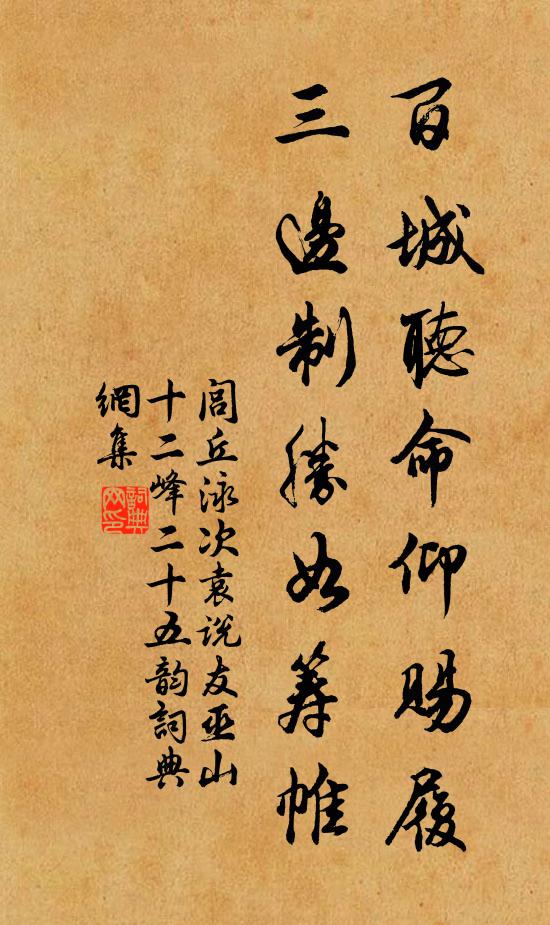 百城聽命仰賜履
三邊制勝如筹帷
閭丘泳次袁说友巫山
十二峰二十五韵詞典
網集
詞典网印